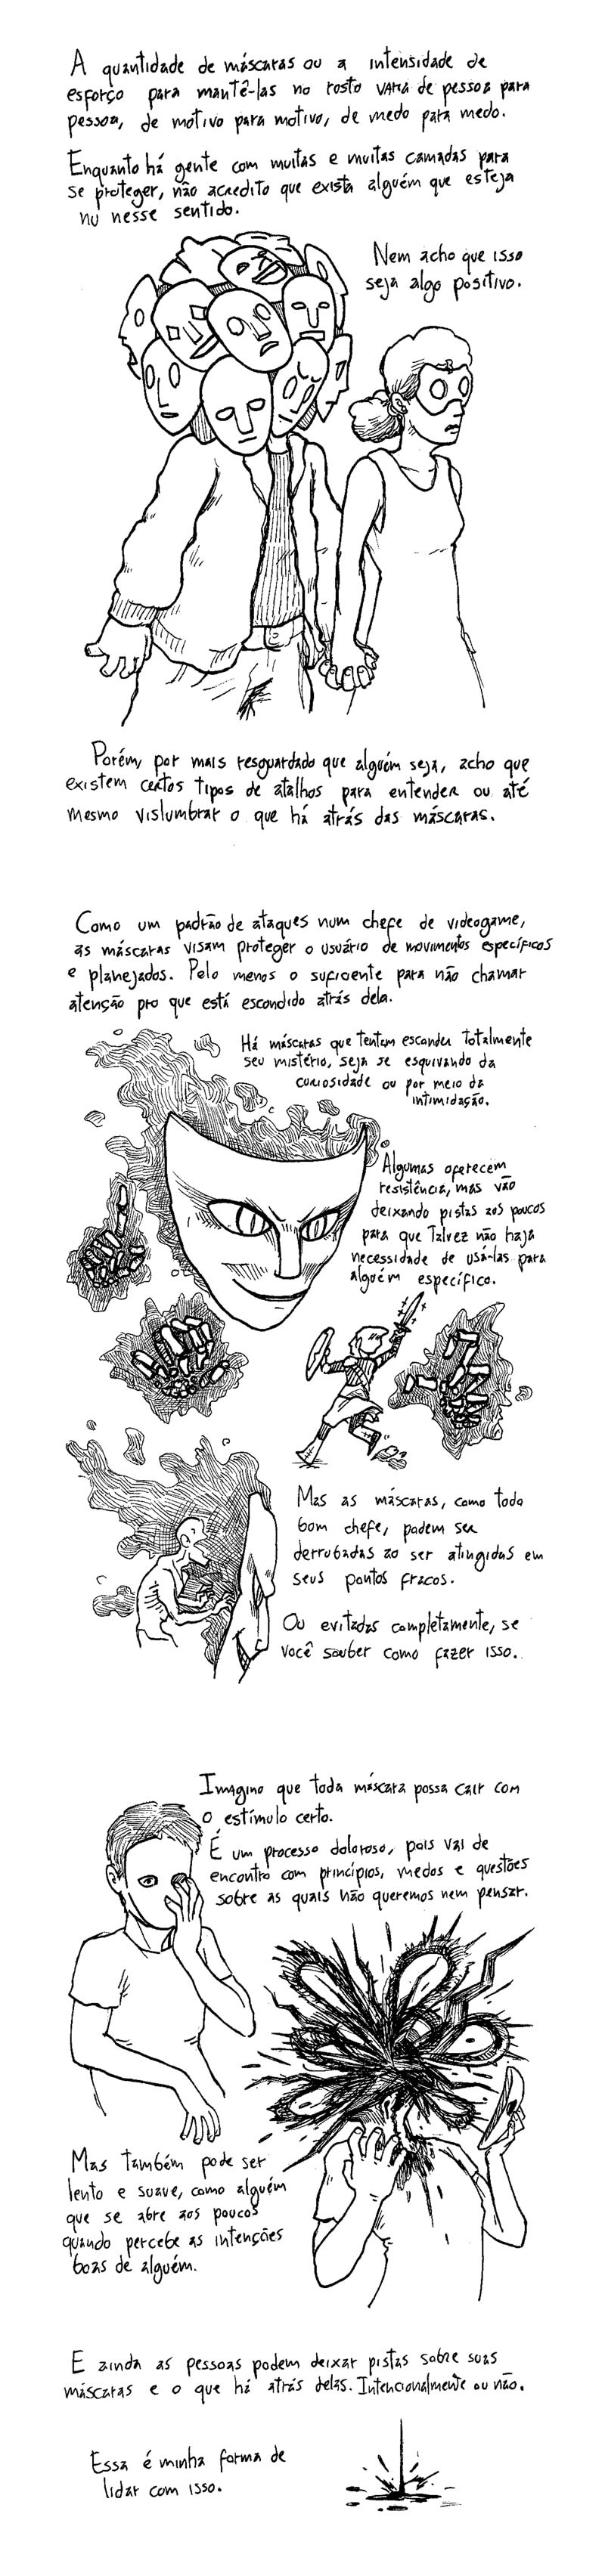 A quantidade de máscaras ou a intensidade de
esforço para mantê-las no rosto varia de pessoa para
pessoa, de motivo para motivo, de medo para medo.
Enquanto há gente com muitas e muitas camadas para
se proteger, não acredito que exista alguém que esteja
nu nesse sentido.
Nem acho que isso
seja algo positivo.
Porém, por mais resguardado que alguém seja, acho que
existem certos tipos de atalhos para entender ou até
mesmo vislumbrar o que há atrás das máscaras.
Como um padrão de ataques num chefe de videogame,
as máscaras visam proteger o usuário de movimentos específicos
e planejados. Pelo menos o suficiente para não chamar
atenção pro que está escondido atrás dela.
Há máscaras que tentam esconder totalmente
seu mistério, seja se esquivando da
curiosidade ou por meio da
intimidação.
Algumas oferecem
resistência, mas vão
deixando pistas aos poucos
para que talvez não haja
necessidade de usá-las para
alguém específico.
Mas as máscaras, como todo
bom chefe, podem ser
derrubadas ao ser atingidas em
seus pontos fracos.
Ou evitadas completamente, se
você souber como fazer isso.
Imagino que toda máscara possa cair com
o estímulo certo.
É um processo doloroso, pois vai de
encontro com princípios, medos e questões
sobre as quais não queremos nem pensar.
Mas também pode ser
lento e suave, como alguém
que se abre aos poucos
quando percebe as intenções
boas de alguém.
E ainda as pessoas podem deixar pistas sobre suas
máscaras e o que há atrás delas. Intencionalmente ou não.
Essa é minha forma de
lidar com isso.